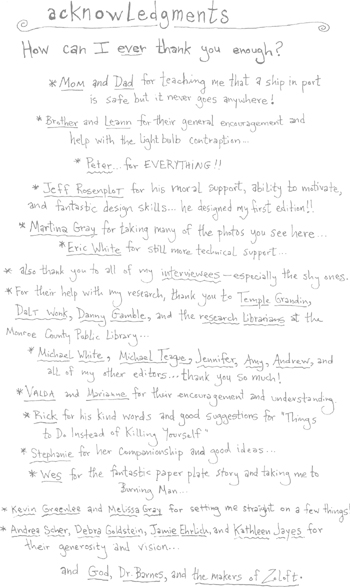 acknowledgments
How can I ever thank you enough?
* Mom and Dad for teaching me that a ship in port
is safe but it never goes anywhere!
* Brother and Leann for their general encouragement and
help with the lightbulb contraption...
* Peter... for EVERYTHING!!
* Jeff Rosenplot for his moral support, ability to motivate,
and fantastic design skills... he designed my first edition!!
* Martina Gray for taking many of the photos you see here...
* Eric White for still more technical support...
* also thank you to all of my interviewees—especially the shy ones.
* For their help with my research, thank you to Temple Grandin,
Dalt Wonk, Danny Gamble, and the research librarians at the
Monroe County Public Library...
* Michael White, Michael Teague, Jennifer, Amy, Andrew, and
all of my other editors... thank you so much!
* Valda and Marianne for their encouragement and understanding.
* Rick for his kind words and good suggestions for "Things
to Do Instead of Killing Yourself"
* Stephanie for her companionship and good ideas...
* Wes for the fantastic paper plate story and taking me to
Burning Man...
* Kevin Greenlee and Melissa Gray for setting me straight on a few things!
* Andrea Scher, Debra Goldstein, Jamie Ehrlich, and Kathleen Jayes for
their generosity and vision...
and God, Dr. Barnes, and the makers of Zoloft.